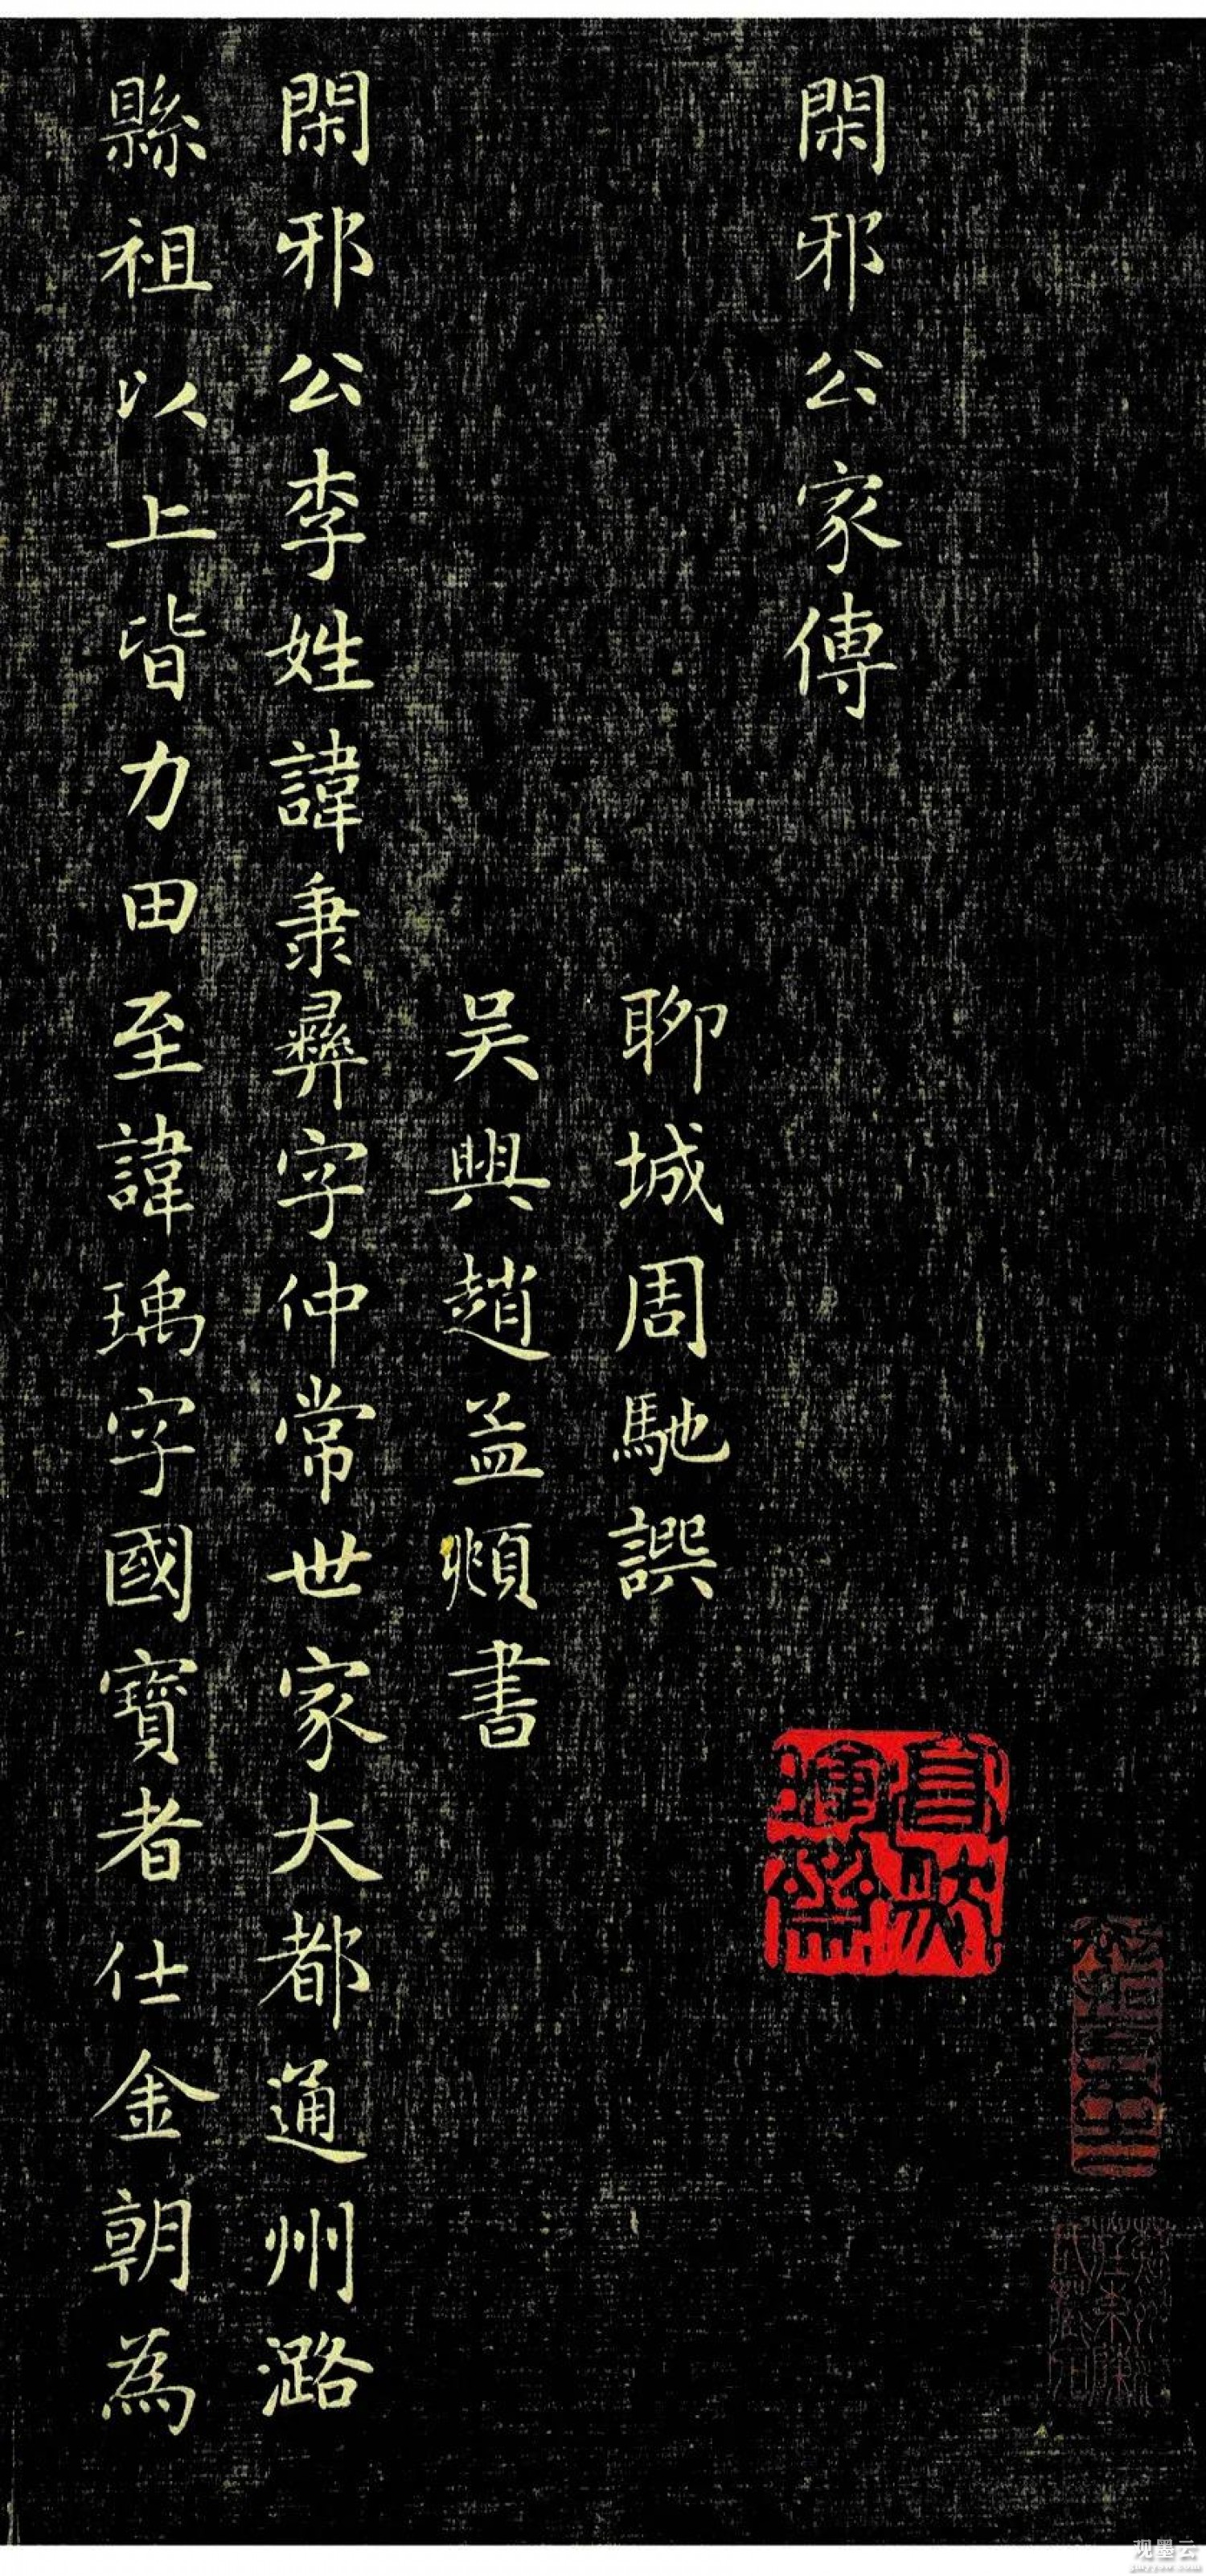 閑邪公家傳
聊城周馳譔
吳興趙孟頫書
閑邪公李姓諱秉彝字仲常世家大都通州潞
縣祖以上皆力田至諱瑀字國寶者仕金朝為
观墨云